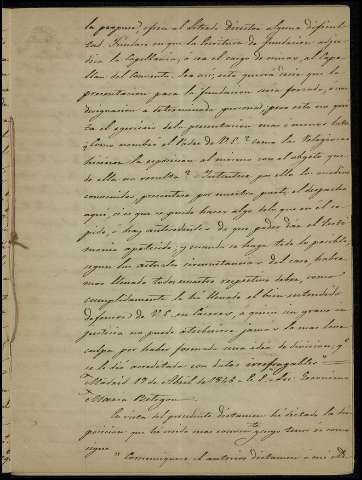 la pagana, ofrece al Letrado Director alguna dificul
tad. Fundase en que la Escritura de fundacion adju
dica la Capellania, ó sea el cargo de misas, al Cape
llan del Convento. Sea asi; esto querrá decir que la
presentacion para la fundacion será forzada, con
designacion á determinada persona; pero esto no qui
ta el egercicio de la presentacion mas ó menos lata
y como nombre el Padre de V.E. como la Religiosa
hicieron la esposicion al mismo con el objeto que
de ella se resulta. Instructivo por ella los medios
convenidos, presentose por nuestra parte el despacho
aqui, si es que se puede hacer algo de lo que en él se
pide, ó hay antecedentes de que, poder dar el Testi
monio apetecido, y cuando se haga todo lo posible,
segun las actuales circunstancias del caso, habre
mos llenado todos nuestros respectivos deberes, como
cumplidamente le ha llenado el bien entendido
defensor de V.E. en Caceres, á quien sin grave in
justicia no puede atribuirse jamas la mas leve
culpa por haber formado una idea de division, q.e
se le dió acreditada con datos irrefragables."
Madrid 17 de Abril de 1846. L. D. José Geronimo
Maria Betegon
La vista del precedente dictamen he dictado la dis
posicion que ha creido mas conveniente, cuyo tenor es como
sigue
" Comuniquese el anterior dictamen á mi